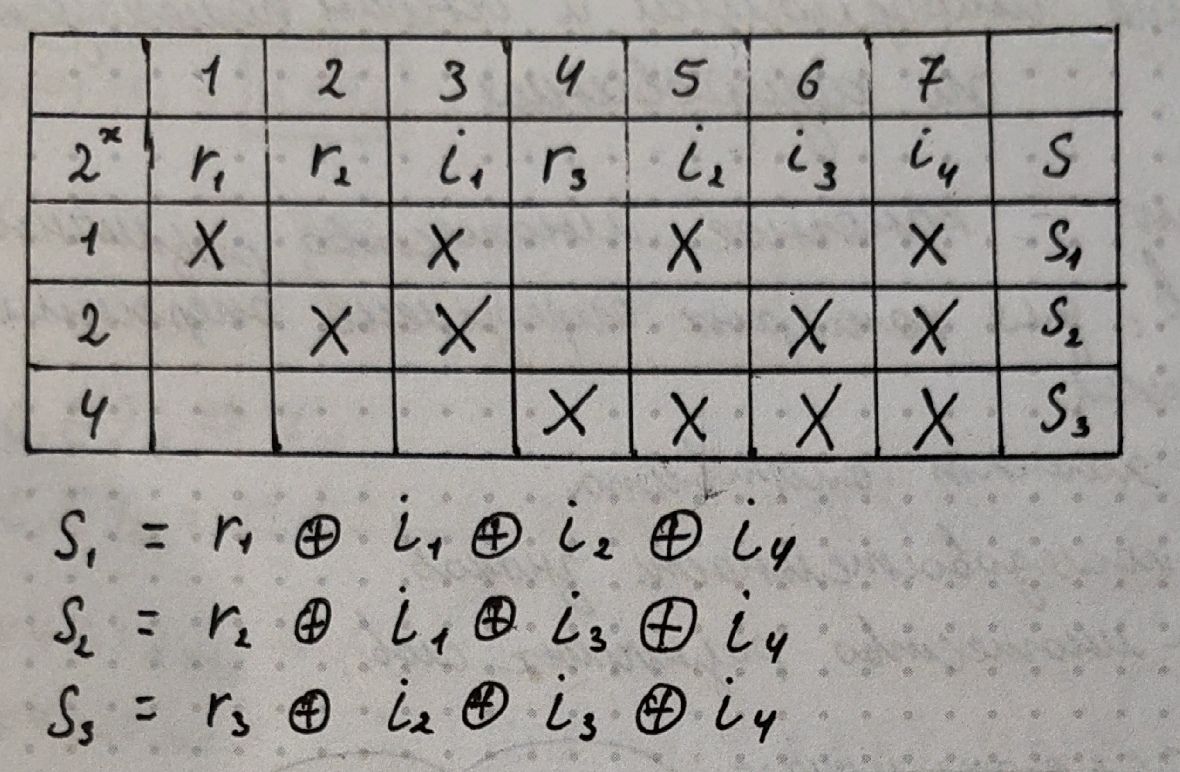 1 2 3 4 5 6 7
2ˣ r₁ r₂ i₁ r₃ i₂ i₃ i₄ S
1 X X X X S₁
2 X X X X S₂
4 X X X X S₃
S₁ = r₁ ⊕ i₁ ⊕ i₂ ⊕ i₄
S₂ = r₂ ⊕ i₁ ⊕ i₃ ⊕ i₄
S₃ = r₃ ⊕ i₂ ⊕ i₃ ⊕ i₄